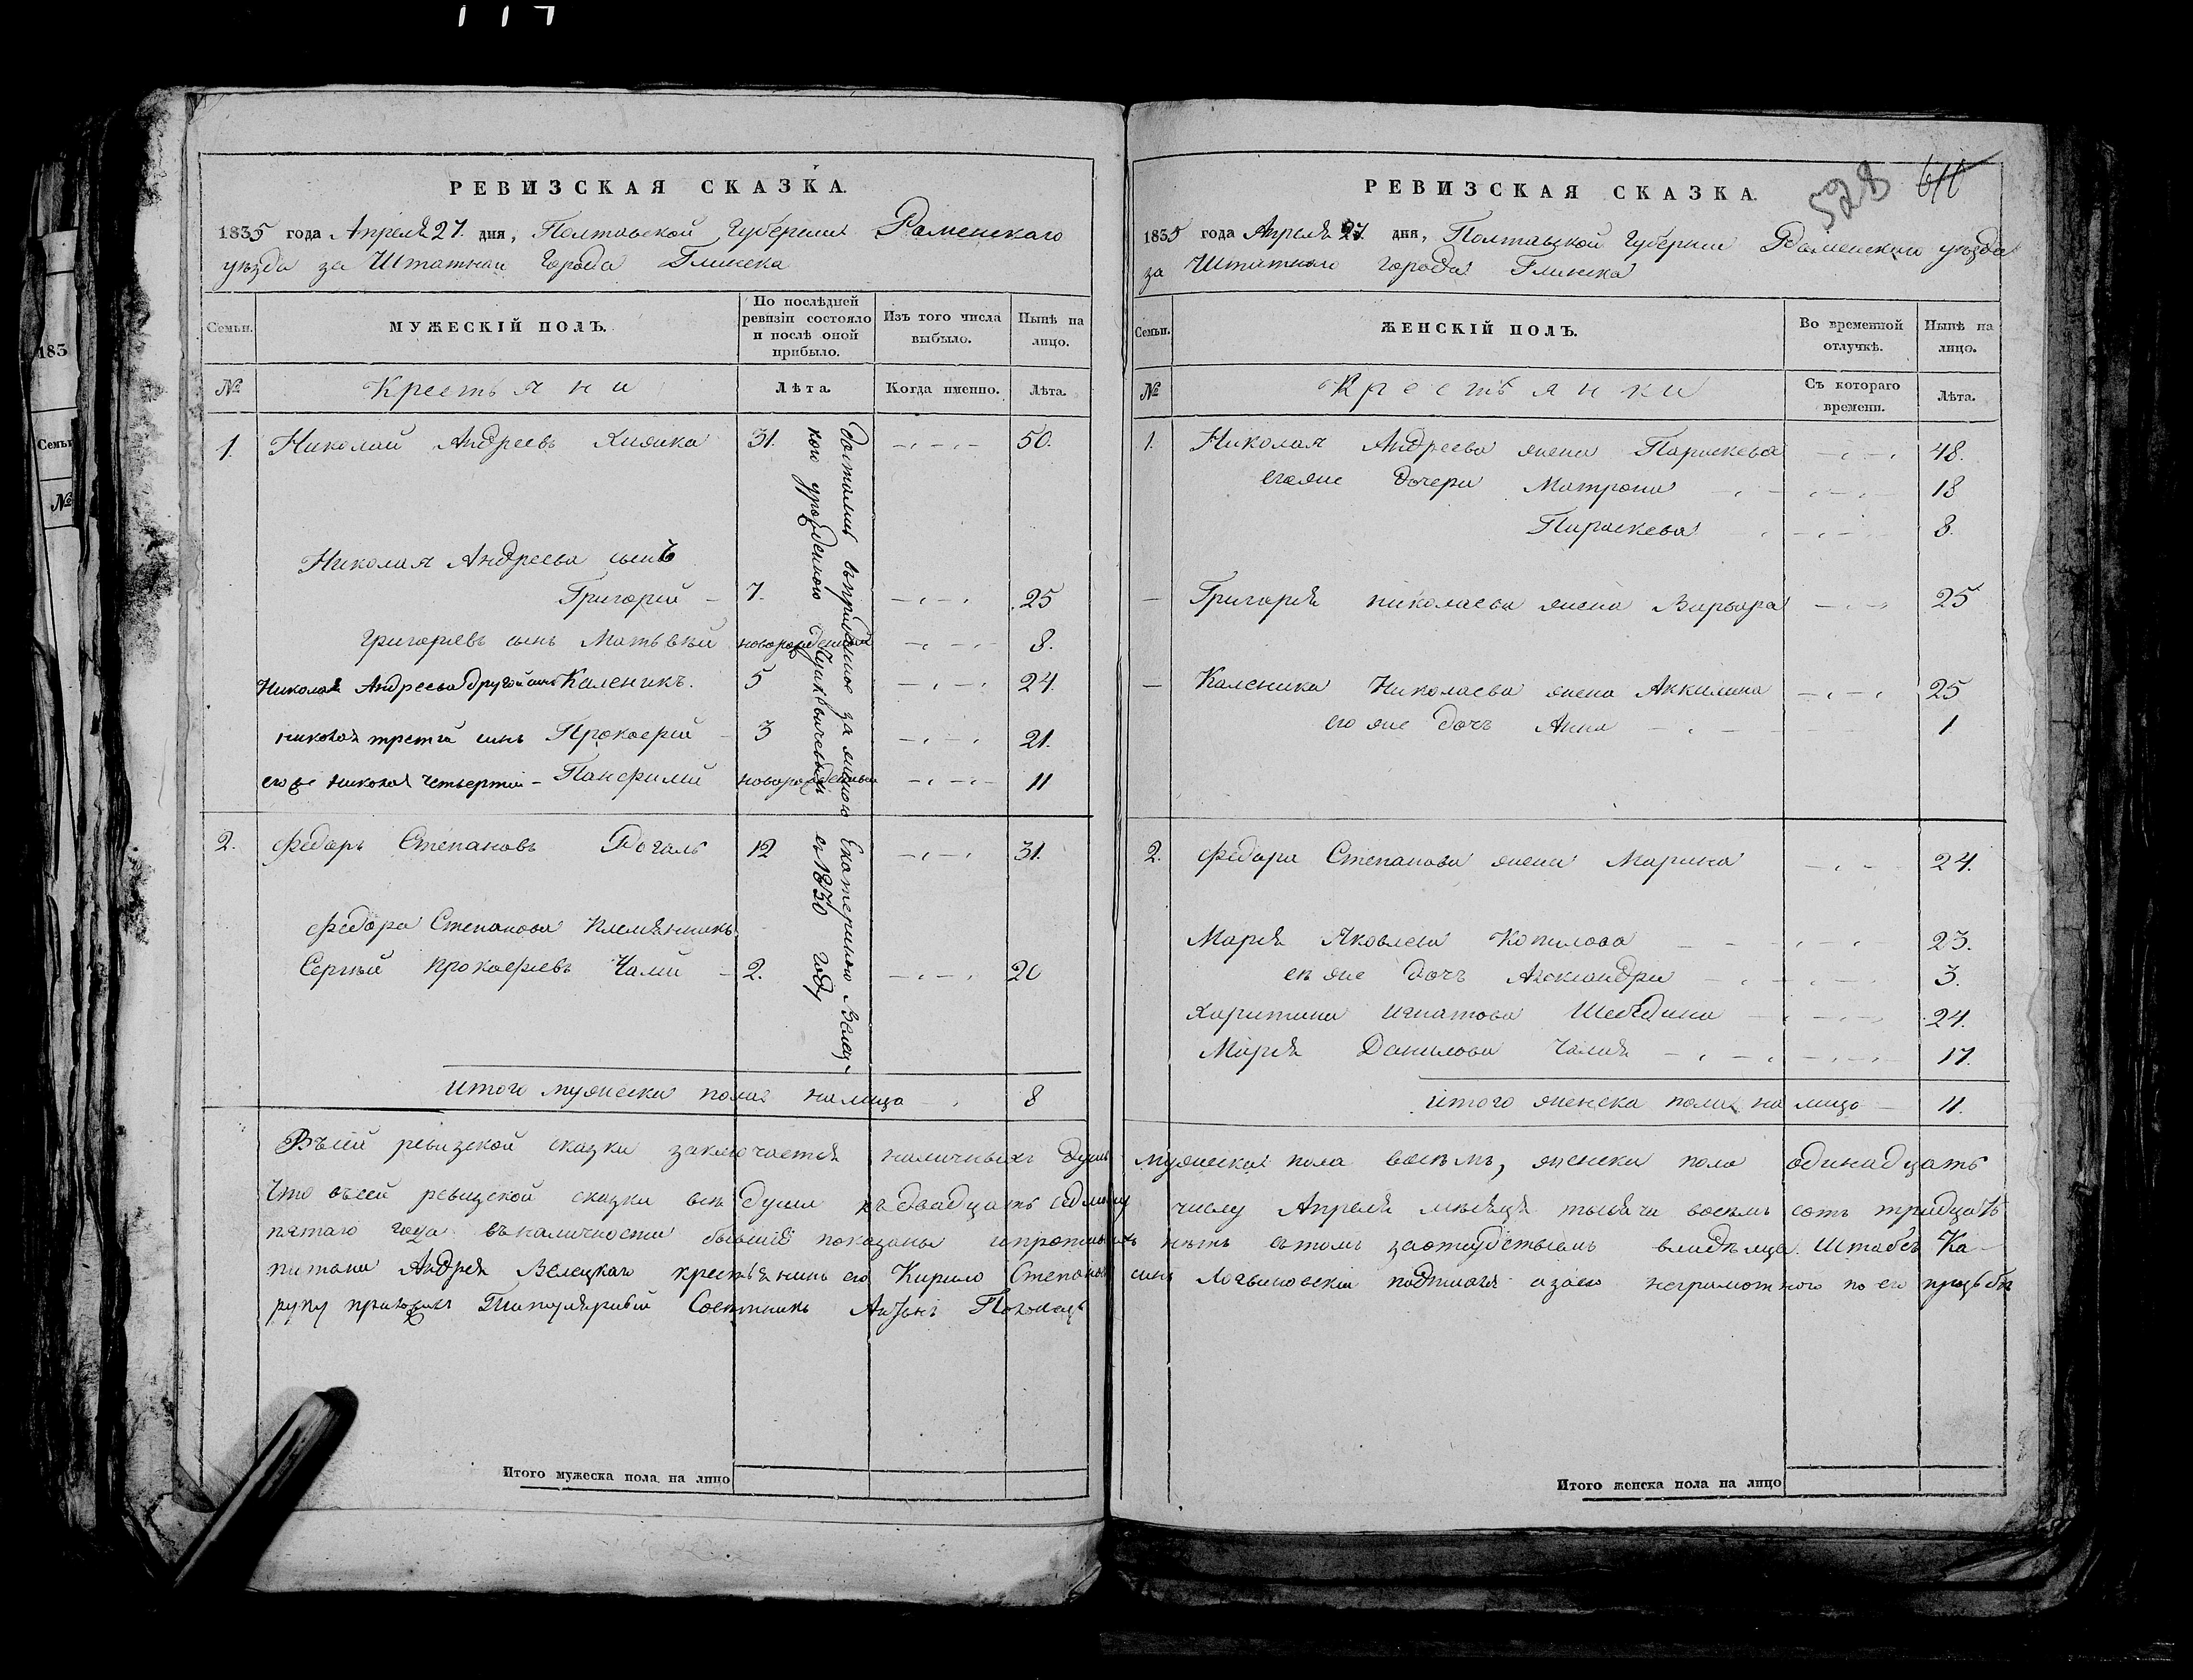 РЕВИЗСКАЯ СКАЗКА.
1835 года Апреля 27. дня, Полтавской Губернии Роменского
уезда за Штатнаго города Глинска
Семьи.
МУЖЕСКІЙ ПОЛЪ.
По послѣдней ревизіи состояло и послѣ оной прибыло.
Изъ того числа выбыло.
Нынѣ на лицо.
№
Крестьяни
Лѣта.
Когда именно.
Лѣта.
1. Николай Андреевъ 31. 50.
Николая Андреева сынъ
Григорий 7. 25
Григориевъ сынъ Матьвѣй новорожденный 8.
Николая Андреева другой сынъ Каленикъ. 5 24.
Николая третий сынъ Прокофий 3 21.
его же Николая четвертий Панфилий новорожденный 11
2. Федоръ Степановъ Рогаль 12 31.
Федора Степанова племянникъ
Сергий Прокофиевъ Чалий 2. 20
Достались въ приданное за женою Екатериною Велец-
кою урожденною съ 1830 году
итого мужеска пола на лицо 8
Въ сей ревизской сказки заключается наличныхъ душъ
Что въ сей ревизской сказки всѣ души къ двадцать седмому
пятаго года въ наличности бывшие показаны и прописныхъ
питана Андрея Велецкаго крестьянинъ его Кирило Степановъ
руку приложил Титулярный Советникъ
Итого мужеска пола на лицо
РЕВИЗСКАЯ СКАЗКА.
528
1835 года Апреля 27. дня, Полтавской Губернии Роменского уезда
за Штатного города Глинска
Семьи.
ЖЕНСКІЙ ПОЛЪ.
Во временной отлучкѣ.
Нынѣ на лицо.
№
Крестьянки
Съ котораго времени.
Лѣта.
1. Николая Андреева жена Параскева 48.
его же дочери Матрона 18
Параскева 8.
Григория Николаева жена Варвара 25
Каленика Николаева жена Акилина 25
его же дочь Анна 1
2. Федора Степанова жена Марина 24.
Мария Яковлева Копилова 23.
ея же дочь Александра 3.
Харитина Игнатова 24.
Мария Данилова Чалая 17.
итого женска пола на лицо 11.
мужеска пола восемь, женска пола одинадцать
числу Апреля месяця тысяча восемь сотъ тридцать
нетъ въ томъ за отсудствиемъ владельца Штабсъ Ка-
сынъ подписался а за его неграмотного по его прозьбе
Итого женска пола на лицо
183
Семьи
№